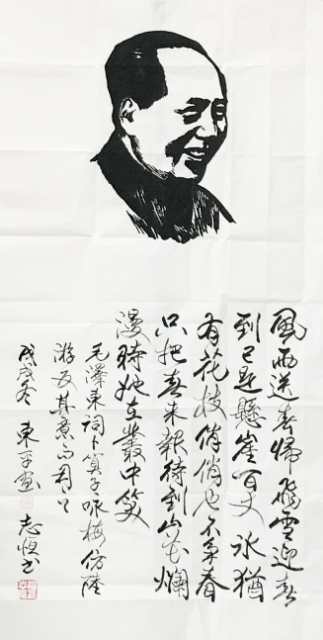 風雨送春歸飛雪迎春
到已是懸崖百丈冰猶
有花枝俏俏也不争春
只把春来報待到山花爛
漫時她在叢中笑
毛澤東詞卜算子咏梅仿陸
游反其意而用之
戊戌冬 東平画 志恒书